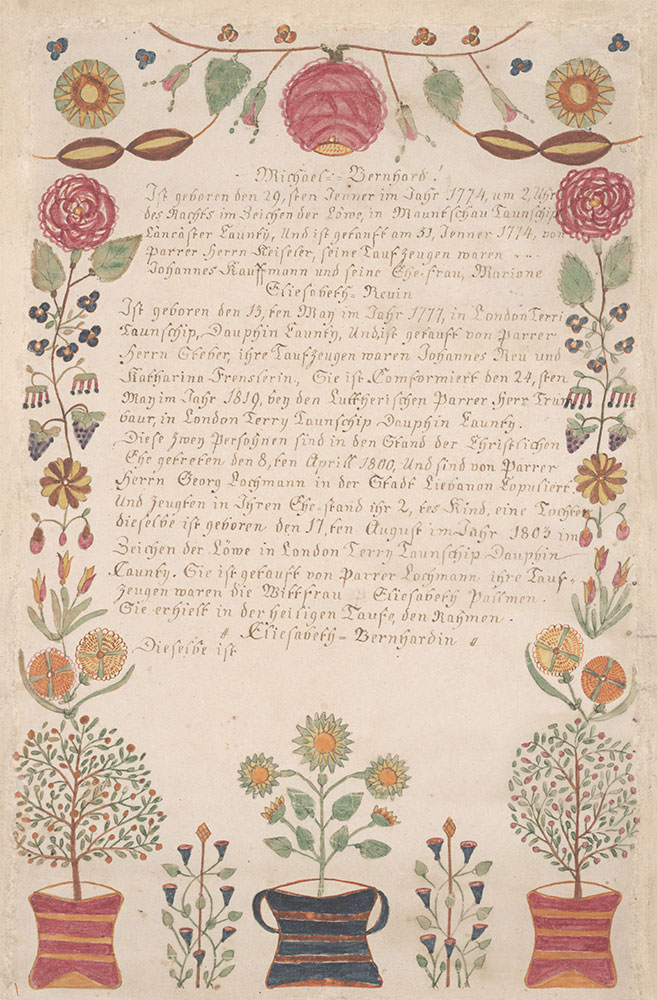 Michael = Bernhard!
Ist geboren den 29,sten Jenner im Jahr 1774, um 2, Uhr
des Nachts im Zeichen der Löwe, in Mauntschau Taunschip
Läncäster Caunty, Und ist getauft am 31, Jenner 1774, von
Parrer Herrn Keiseler, seine Taufzeugen waren
Johannes Kauffmann und seine Ehe-frau, Marione
Eliesabeth = Neuin
Ist geboren den 13,ten May im Jahr 1777, in London Terri
Taunschip, Dauphin Caunty, Und ist getauft von Parrer
Herrn Steber, ihre Taufzeugen waren Johannes Neu und
Katharina Frenslerin, Sie ist Comformiert den 24,sten
May im Jahr 1819, bey den Luttherischen Parrer Herr Trum
baur, in London Terry Taunschip Dauphin Caunty.
Diese zwey Persohnen sind in den Stand der Christlichen
Ehe getreten den 8,ten Aprill 1800, Und sind von Parrer
Herrn Georg Lochmann in der Stadt Liebanon Copuliert
Und zeugten in Ihren Ehe-stand ihr 2,tes Kind, eine Tochter
dieselbe ist geboren den 17,ten August im Jahr 1803 im
Zeichen der Löwe in London Terry Taunschip Dauphin
Caunty. Sie ist getauft von Parrer Lochmann ihre Tauf-
zeugen waren die Wittfrau Eliesabeth Pallmen.
Sie erhielt in der heiligen Taufe, den Nahmen.
" Eliesabeth = Bernhardin "
Dieselbe ist